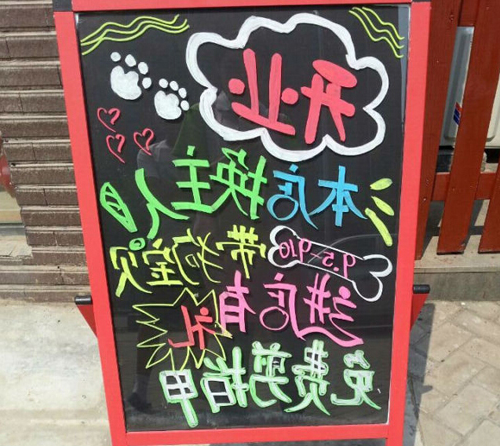 开业
本店换主人!
9.5-9.10
带狗宝贝
进店有礼
免费剪指甲